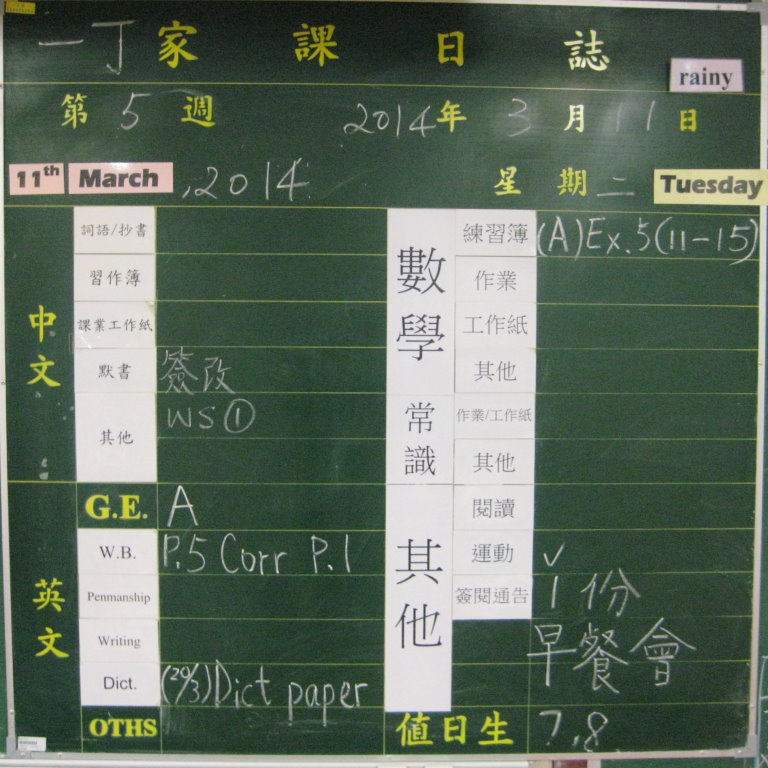 一丁家課日誌
rainy
第5週 2014年3月11日
11th March, 2014 星期二 Tuesday
中文
詞語/抄書
習作簿
課業工作紙
默書 簽改
其他 WS①
英文
G.E. A
W.B. P.5 Corr P.1
Penmanship
Writing
Dict. (20/3) Dict paper
OTHS
數學
練習簿 (A) Ex.5(11-15)
作業
工作紙
其他
常識
作業/工作紙
其他
其他
閱讀
運動 ✓
簽閱通告 1份
早餐會
值日生 7,8